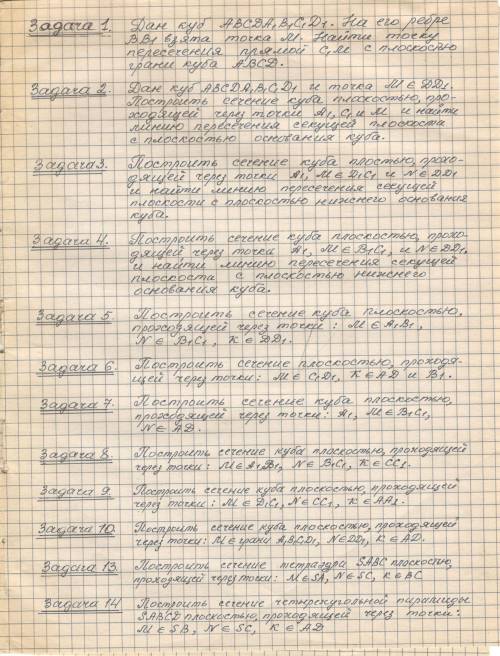 Задача 1. Дан куб ABCDA1B1C1D1. На его ребре
BB1 взята точка M. Найти точку
пересечения прямой C1M с плоскостью
грани куба ABCD.
Задача 2. Дан куб ABCDA1B1C1D1 и точка M ∈ DD1.
Построить сечение куба плоскостью, про-
ходящей через точки A1, C1 и M и найти
линию пересечения секущей плоскости
с плоскостью основания куба.
Задача 3. Построить сечение куба плостью, прохо-
дящей через точки A1, M ∈ D1C1 и N ∈ DD1
и найти линию пересечения секущей
плоскости с плоскостью нижнего основания
куба.
Задача 4. Построить сечение куба плоскостью, прохо-
дящей через точки A1, M ∈ B1C1, и N ∈ DD1.
и найти линию пересечения секущей
плоскости с плоскостью нижнего
основания куба.
Задача 5. Построить сечение куба плоскостью,
проходящей через точки: M ∈ A1B1,
N ∈ B1C1, K ∈ DD1.
Задача 6. Построить сечение плоскостью, проходя-
щей через точки: M ∈ C1D1, K ∈ AD и B1.
Задача 7. Построить сечение куба плоскостью,
проходящей через точки: A1, M ∈ B1C1,
N ∈ AD.
Задача 8. Построить сечение куба плоскостью, проходящей
через точки: M ∈ A1B1, N ∈ B1C1, K ∈ CC1.
Задача 9. Построить сечение куба плоскостью, проходящей
через точки: M ∈ D1C1, N ∈ CC1, K ∈ AA1.
Задача 10. Построить сечение куба плоскостью, проходящей
через точки: M ∈ грани A1B1C1D1, N ∈ DD1, K ∈ AD.
Задача 13. Построить сечение тетраэдра SABC плоскостью,
проходящей через точки: M ∈ SA, N ∈ SC, K ∈ BC
Задача 14 Построить сечение четырехугольной пирамиды
SABCD плоскостью, проходящей через точки:
M ∈ SB, N ∈ SC, K ∈ AD